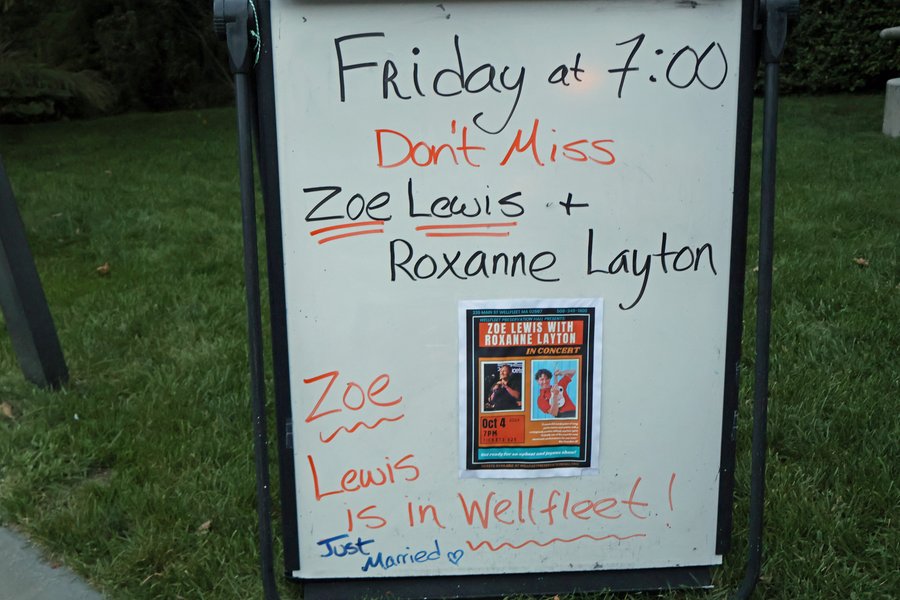 Friday at 7:00
Don't Miss
Zoe Lewis +
Roxanne Layton
335 MAIN ST WELLFLEET MA 02667 508-349-1800
WELLFLEET PRESERVATION HALL PRESENTS:
ZOE LEWIS WITH
ROXANNE LAYTON
IN CONCERT
Oct 4
7PM
TICKETS $25
Get ready for an upbeat and joyous show!
Zoe
Lewis
is in Wellfleet!
Just
Married